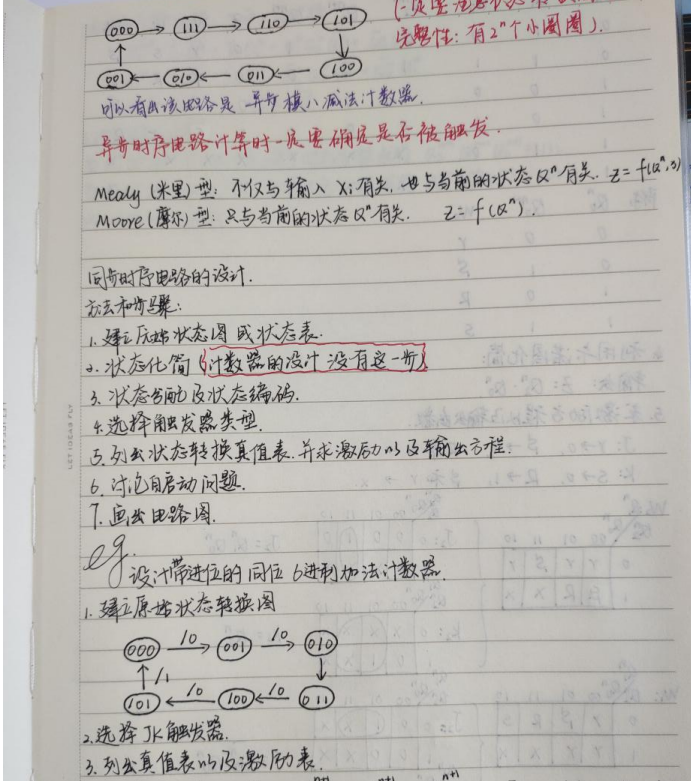 000 → 111 → 110 → 101
完整性: 有2ⁿ个小圈圈).
001 ← 010 ← 011 ← 100
可以看出该电路是 异步模八减法计数器.
异步时序电路计算时一定要确定是否被触发.
Mealy (米里)型: 不仅与输入 Xi 有关. 也与当前的状态Qⁿ有关. Z=f(Qⁿ,
Moore (摩尔)型: 只与当前的状态Qⁿ有关. Z=f(Qⁿ).
同步时序电路的设计.
方法和步骤:
1. 建立原始状态图 或状态表.
2. 状态化简 (计数器的设计没有这一步)
3. 状态分配及状态编码.
4. 选择触发器类型.
5. 列出状态转换真值表. 并求激励以及输出方程.
6. 讨论自启动问题.
7. 画出电路图.
eg. 设计带进位的同位 6进制加法计数器.
1. 建立原始状态转换图
000 /0→ 001 /0→ 010
↑ /1 ↓
101 ←/0 100 ←/0 011
2. 选择 JK触发器.
3. 列出真值表以及激励表.
n+1 n+1